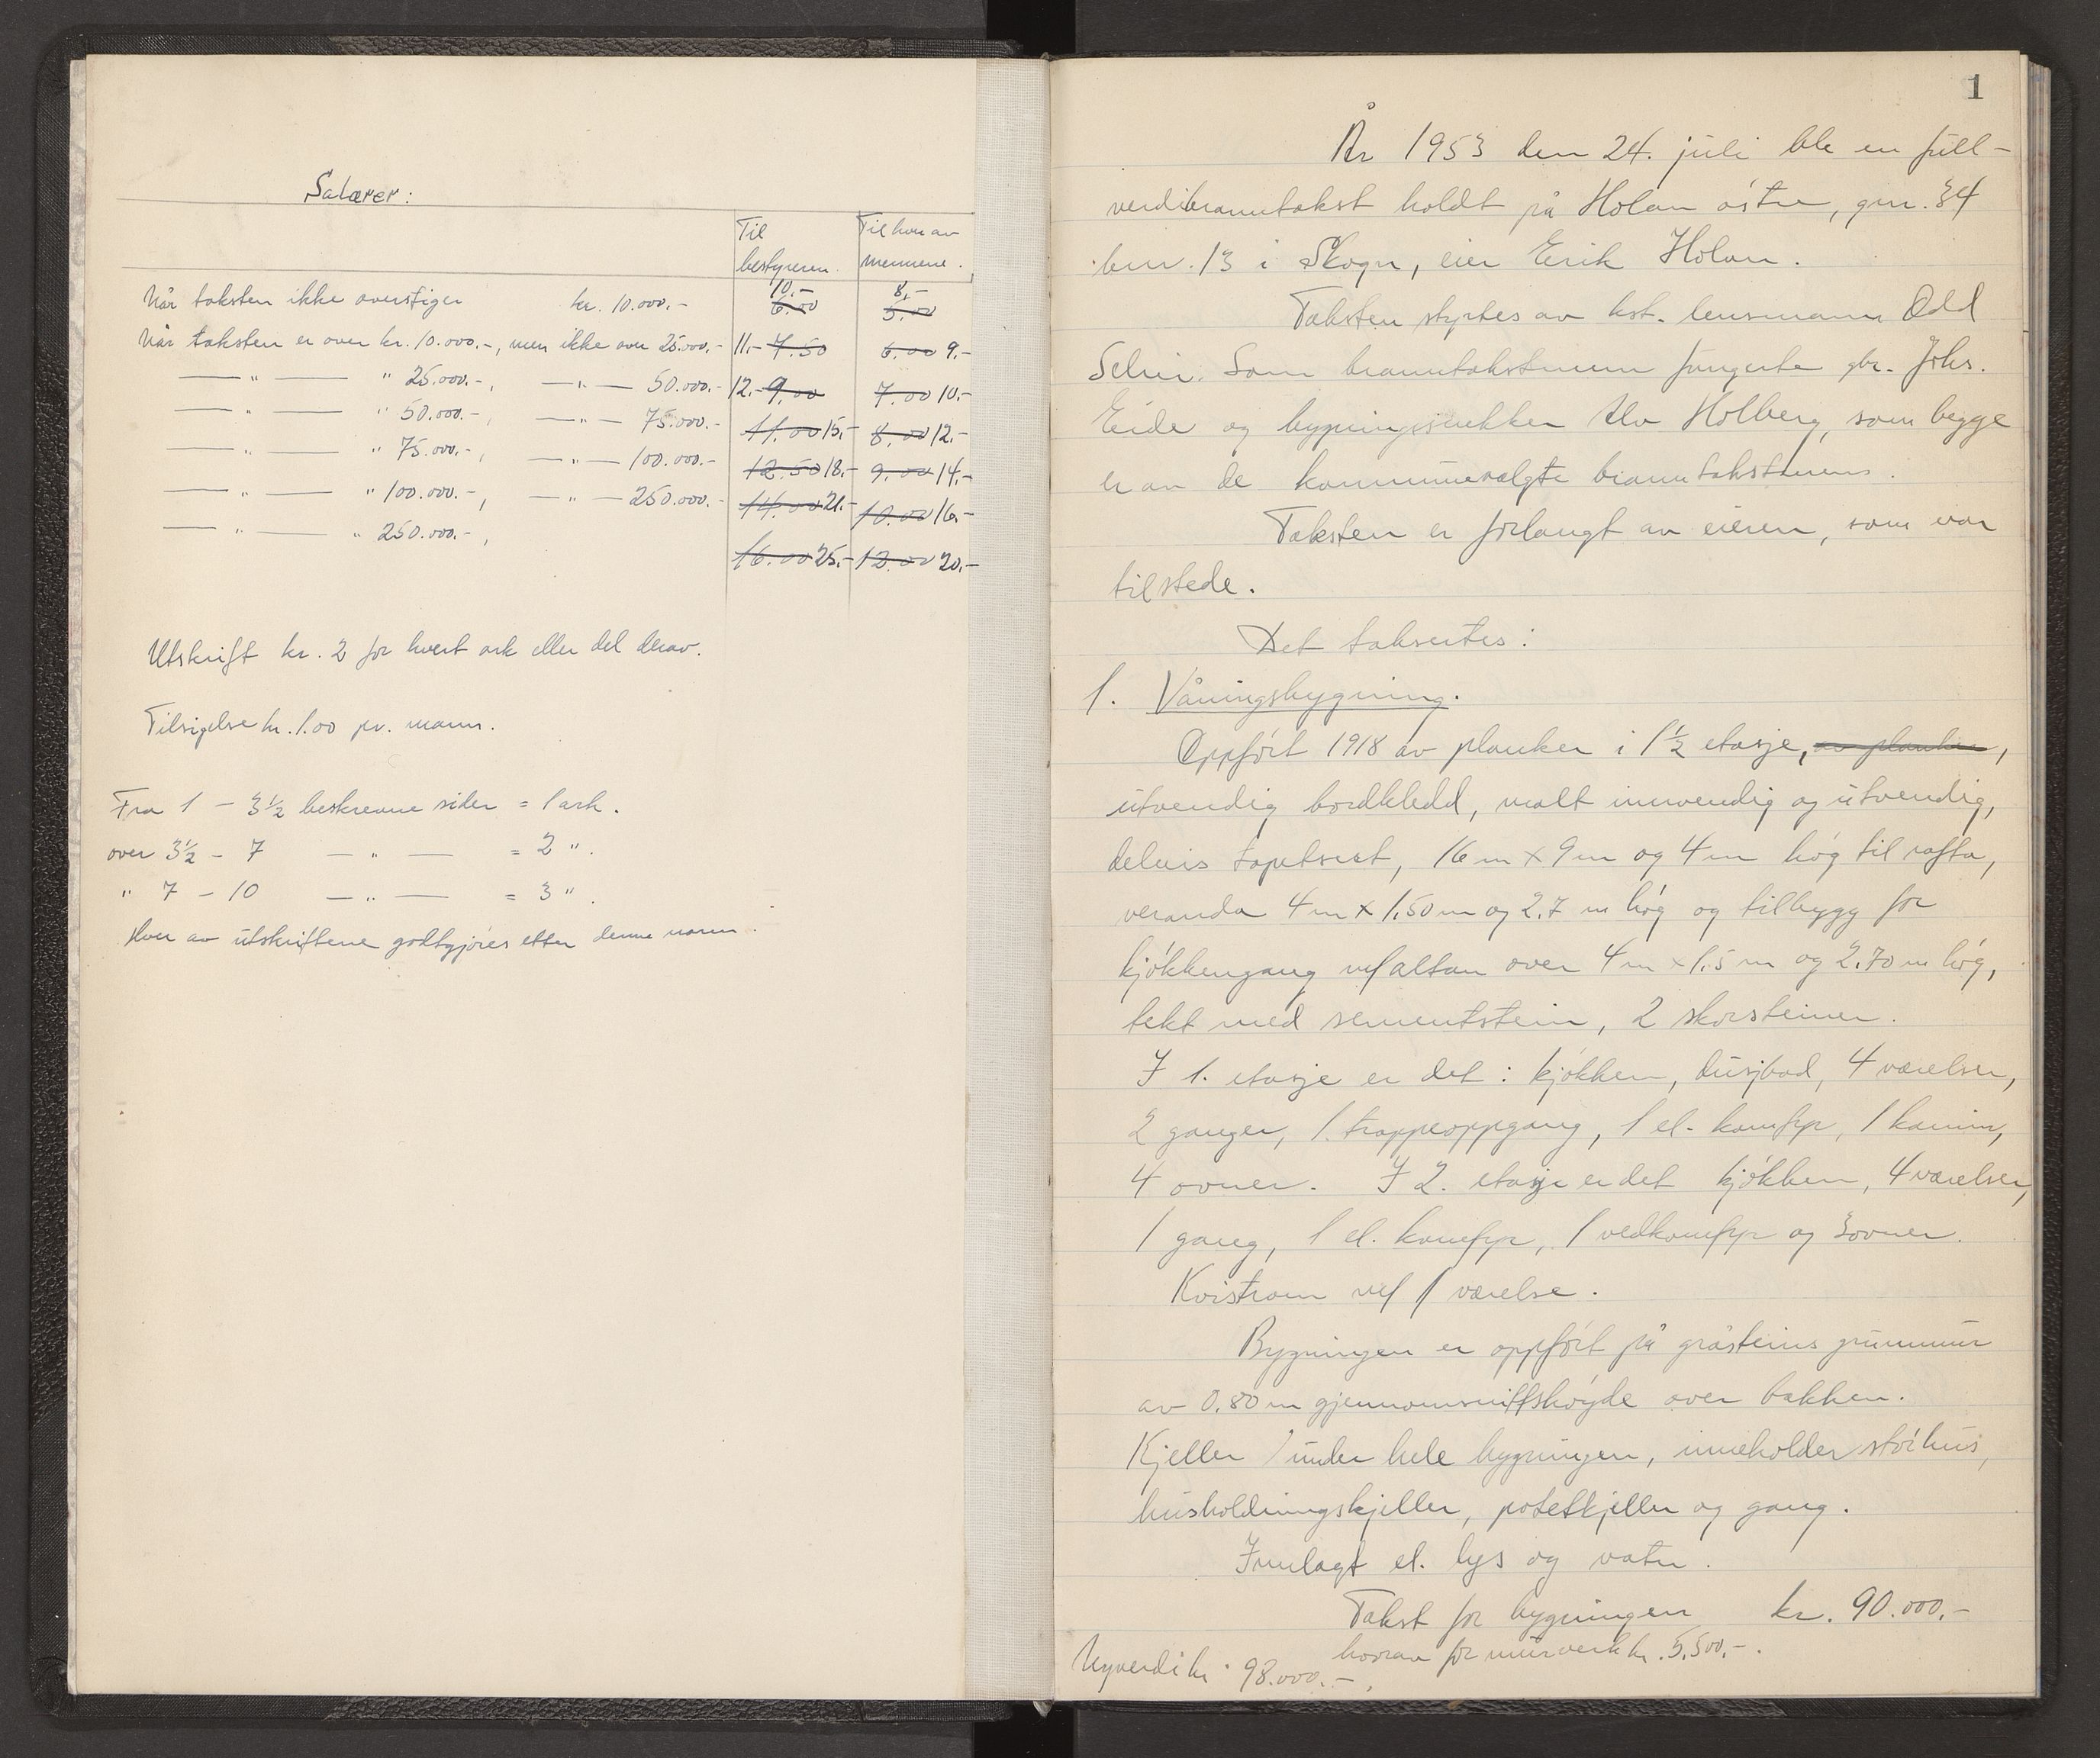 Salærer:
Til bestyreren. Til hver av mennene.
Når taksten ikke overstiger kr. 10.000.- 10.- 6.00 8,- 5.00
Når taksten er over kr. 10.000.-, men ikke over 25.000.- 11.- 7.50 6.00 9.-
—„— " 25.000.-, —„— 50.000.- 12.- 9.00 7.00 10.-
—„— " 50.000.-, —„— 75.000.- 11.00 15.- 8.00 12.-
—„— " 75.000.-, —„— 100.000.- 12.50 18.- 9.00 14.-
—„— " 100.000.-, —„— 250.000.- 14.00 21.- 10.00 16.-
—„— " 250.000.-, 16.00 25.- 12.00 20.-
Utskrift kr. 2 for hvert ark eller del derav.
Tilsigelse kr. 1.00 pr. mann.
Fra 1 – 3½ beskrevne sider = 1 ark.
over 3½ – 7 —„— = 2 ".
" 7 – 10 —„— = 3 ".
Hver av utskriftene godtgjøres etter denne norm.
1
År 1953 den 24. juli ble en full-
verdibranntakst holdt på Holan østre, gnr. 34
bnr. 13 i Skogn, eier Erik Holan.
Taksten styrtes av kst. lensmann Odd
Selvi. Som branntakstmenn fungerte gbr. Johs.
Eide og bygningssnekker Alv Holberg, som begge
er av de kommunevalgte branntakstmenn.
Taksten er forlangt av eieren, som var
tilstede.
Det taksertes:
1. Våningsbygning.
Oppført 1918 av planker i 1½ etasje, av planker,
utvendig bordkledd, malt innvendig og utvendig,
delvis tapetsert, 16 m x 9 m og 4 m høg til rafta,
veranda 4 m x 1,50 m og 2,7 m høg og tilbygg for
kjøkkengang m/altan over 4 m x 1,5 m og 2,70 m høg,
tekt med sementstein, 2 skorsteiner.
I 1. etasje er det: kjøkken, dusjbad, 4 værelser,
2 ganger, 1 trappeoppgang, 1 el. komfyr, 1 kamin,
4 ovner. I 2. etasje er det kjøkken, 4 værelser,
1 gang, 1 el. komfyr, 1 vedkomfyr og 3 ovner.
Kvistrom m/ 1 værelse.
Bygningen er oppført på gråsteins grunnmur
av 0.80 m gjennomsnittshøyde over bakken.
Kjeller under hele bygningen, inneholder størhus,
husholdningskjeller, potetkjeller og gang.
Innlagt el. lys og vatn.
Takst for bygningen kr. 90.000.-
hvorav for murverk kr. 5.500.-.
Nyverdi kr. 98.000.-.